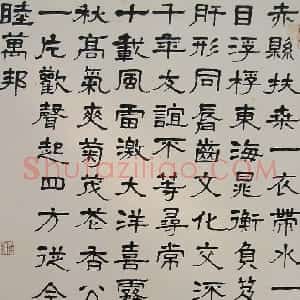 赤縣扶桒一衣帶水一
目浮桴東海晁衡負笈
肝形同脣齒文化交
千年友誼不等尋常
十載風雷激大洋喜露
秋髙氣爽菊茂花香公
一片歡聲起四方從今
睦萬邦
Shufaziliao.com